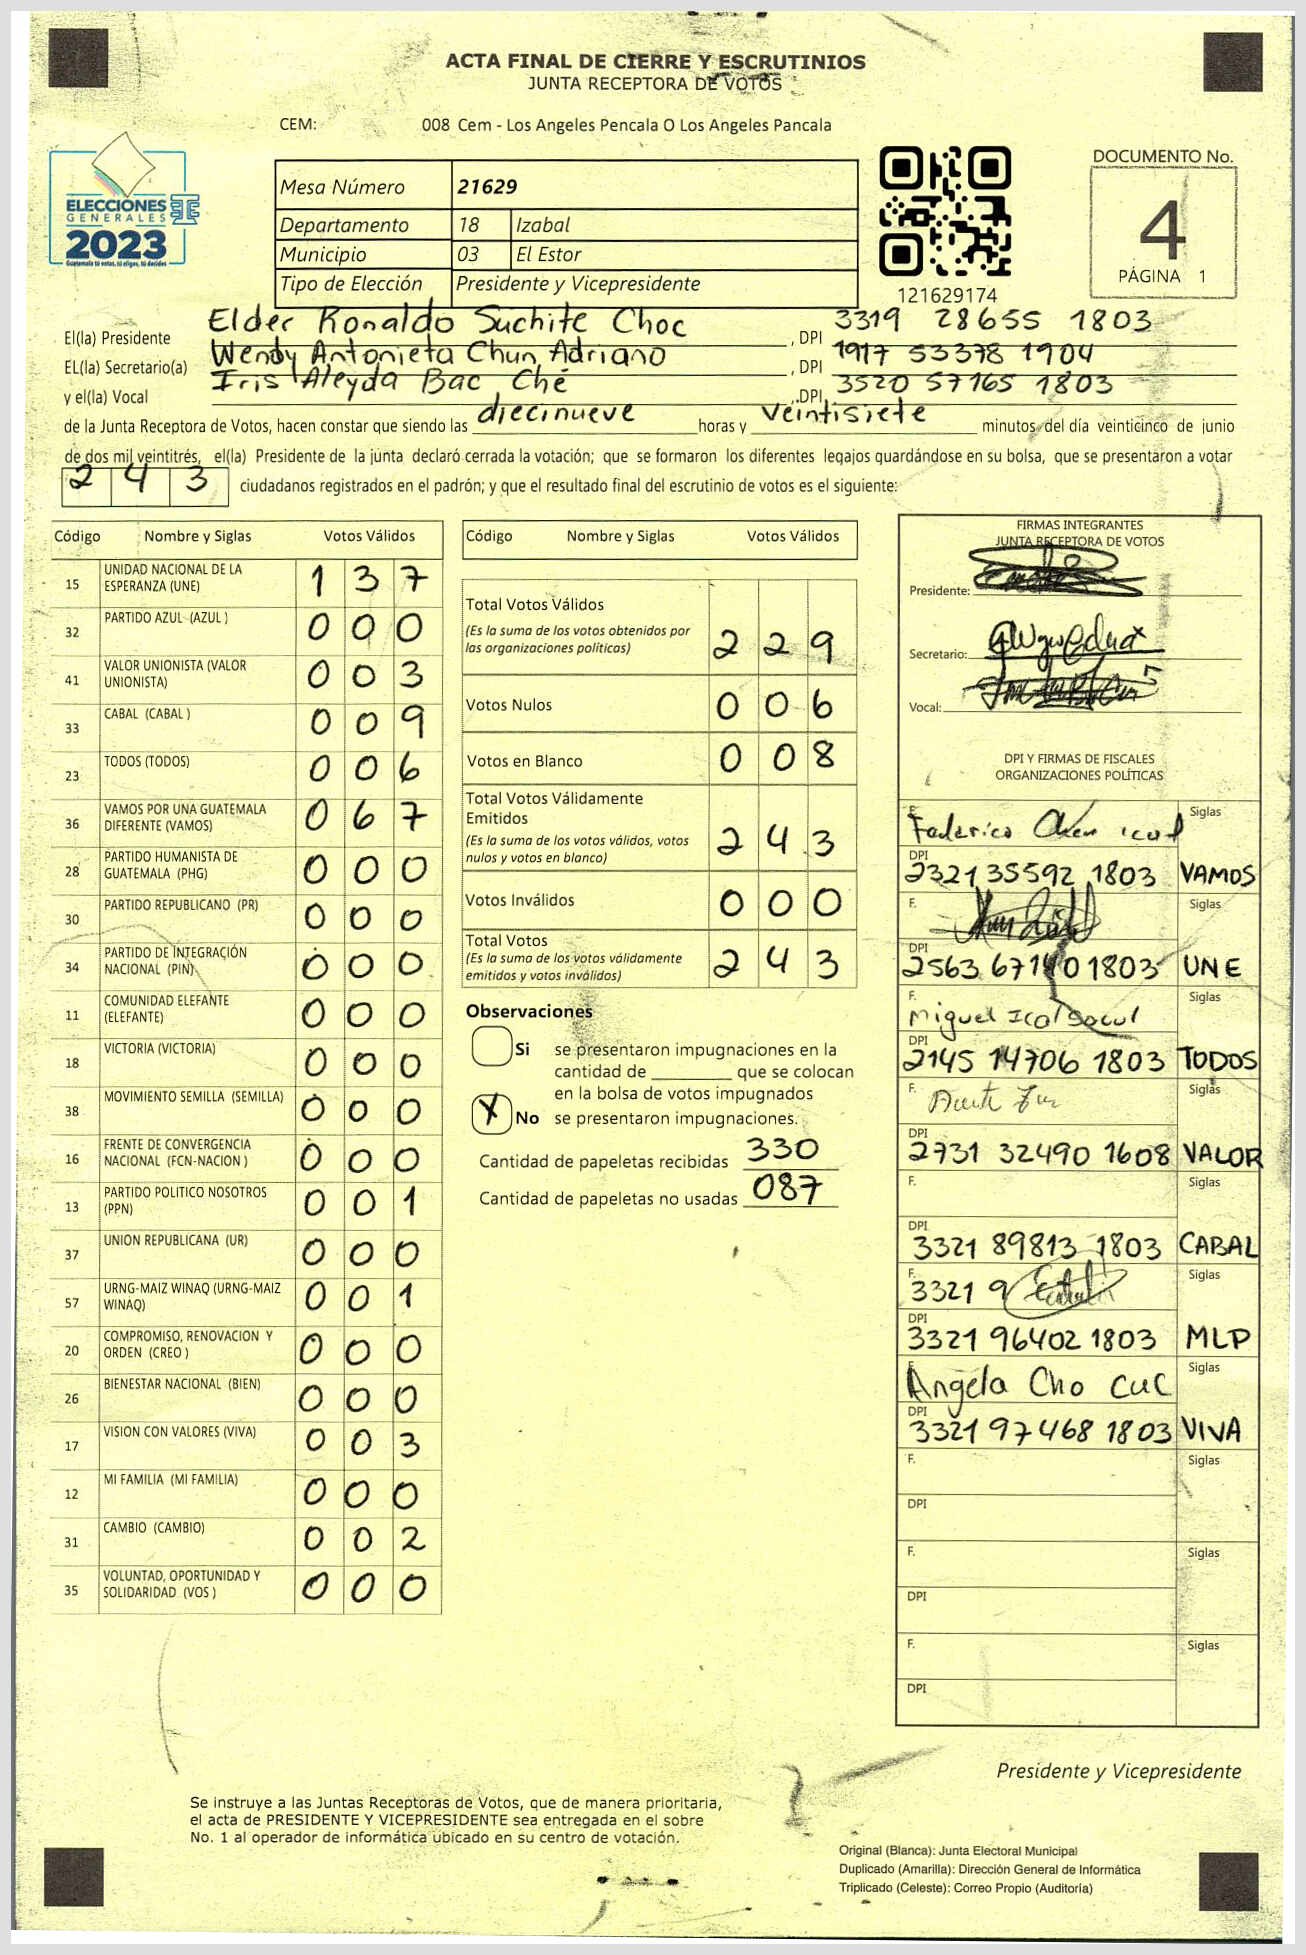 ACTA FINAL DE CIERRE Y ESCRUTINIOS
JUNTA RECEPTORA DE VOTOS
CEM: 008 Cem - Los Angeles Pencala O Los Angeles Pancala
ELECCIONES
GENERALES
2023
Guatemala tú votas, tú eliges, tú decides
Mesa Número 21629
Departamento 18 Izabal
Municipio 03 El Estor
Tipo de Elección Presidente y Vicepresidente
121629174
DOCUMENTO No.
4
PÁGINA 1
El(la) Presidente Elder Ronaldo Suchite Choc , DPI 3319 28655 1803
EL(la) Secretario(a) Wendy Antonieta Chun Adriano , DPI 1917 53378 1904
y el(la) Vocal Iris Aleyda Bac Ché , DPI 3520 57165 1803
de la Junta Receptora de Votos, hacen constar que siendo las diecinueve horas y veintisiete minutos del día veinticinco de junio
de dos mil veintitrés, el(la) Presidente de la junta declaró cerrada la votación; que se formaron los diferentes legajos guardándose en su bolsa, que se presentaron a votar
2 4 3 ciudadanos registrados en el padrón; y que el resultado final del escrutinio de votos es el siguiente:
Código Nombre y Siglas Votos Válidos
15 UNIDAD NACIONAL DE LA ESPERANZA (UNE) 1 3 7
32 PARTIDO AZUL (AZUL ) 0 0 0
41 VALOR UNIONISTA (VALOR UNIONISTA) 0 0 3
33 CABAL (CABAL ) 0 0 9
23 TODOS (TODOS) 0 0 6
36 VAMOS POR UNA GUATEMALA DIFERENTE (VAMOS) 0 6 7
28 PARTIDO HUMANISTA DE GUATEMALA (PHG) 0 0 0
30 PARTIDO REPUBLICANO (PR) 0 0 0
34 PARTIDO DE INTEGRACIÓN NACIONAL (PIN) 0 0 0
11 COMUNIDAD ELEFANTE (ELEFANTE) 0 0 0
18 VICTORIA (VICTORIA) 0 0 0
38 MOVIMIENTO SEMILLA (SEMILLA) 0 0 0
16 FRENTE DE CONVERGENCIA NACIONAL (FCN-NACION ) 0 0 0
13 PARTIDO POLITICO NOSOTROS (PPN) 0 0 1
37 UNION REPUBLICANA (UR) 0 0 0
57 URNG-MAIZ WINAQ (URNG-MAIZ WINAQ) 0 0 1
20 COMPROMISO, RENOVACION Y ORDEN (CREO ) 0 0 0
26 BIENESTAR NACIONAL (BIEN) 0 0 0
17 VISION CON VALORES (VIVA) 0 0 3
12 MI FAMILIA (MI FAMILIA) 0 0 0
31 CAMBIO (CAMBIO) 0 0 2
35 VOLUNTAD, OPORTUNIDAD Y SOLIDARIDAD (VOS ) 0 0 0
Código Nombre y Siglas Votos Válidos
Total Votos Válidos
(Es la suma de los votos obtenidos por
las organizaciones políticas) 2 2 9
Votos Nulos 0 0 6
Votos en Blanco 0 0 8
Total Votos Válidamente
Emitidos
(Es la suma de los votos válidos, votos
nulos y votos en blanco) 2 4 3
Votos Inválidos 0 0 0
Total Votos
(Es la suma de los votos válidamente
emitidos y votos inválidos) 2 4 3
Observaciones
Si se presentaron impugnaciones en la
cantidad de ________ que se colocan
en la bolsa de votos impugnados
X No se presentaron impugnaciones.
Cantidad de papeletas recibidas 330
Cantidad de papeletas no usadas 087
FIRMAS INTEGRANTES
JUNTA RECEPTORA DE VOTOS
Presidente:
Secretario:
Vocal:
DPI Y FIRMAS DE FISCALES
ORGANIZACIONES POLÍTICAS
F. Federico Siglas
DPI 2321 35592 1803 VAMOS
F. Siglas
DPI 2563 67140 1803 UNE
F. Miguel Siglas
DPI 2145 14706 1803 TODOS
F. Siglas
DPI 2731 32490 1608 VALOR
F. Siglas
DPI 3321 89813 1803 CABAL
F. 3321 9 Siglas
DPI 3321 96402 1803 MLP
F. Angela Cho Cuc Siglas
DPI 3321 97468 1803 VIVA
F. Siglas
DPI
F. Siglas
DPI
F. Siglas
DPI
Presidente y Vicepresidente
Se instruye a las Juntas Receptoras de Votos, que de manera prioritaria,
el acta de PRESIDENTE Y VICEPRESIDENTE sea entregada en el sobre
No. 1 al operador de informática ubicado en su centro de votación.
Original (Blanca): Junta Electoral Municipal
Duplicado (Amarilla): Dirección General de Informática
Triplicado (Celeste): Correo Propio (Auditoría)